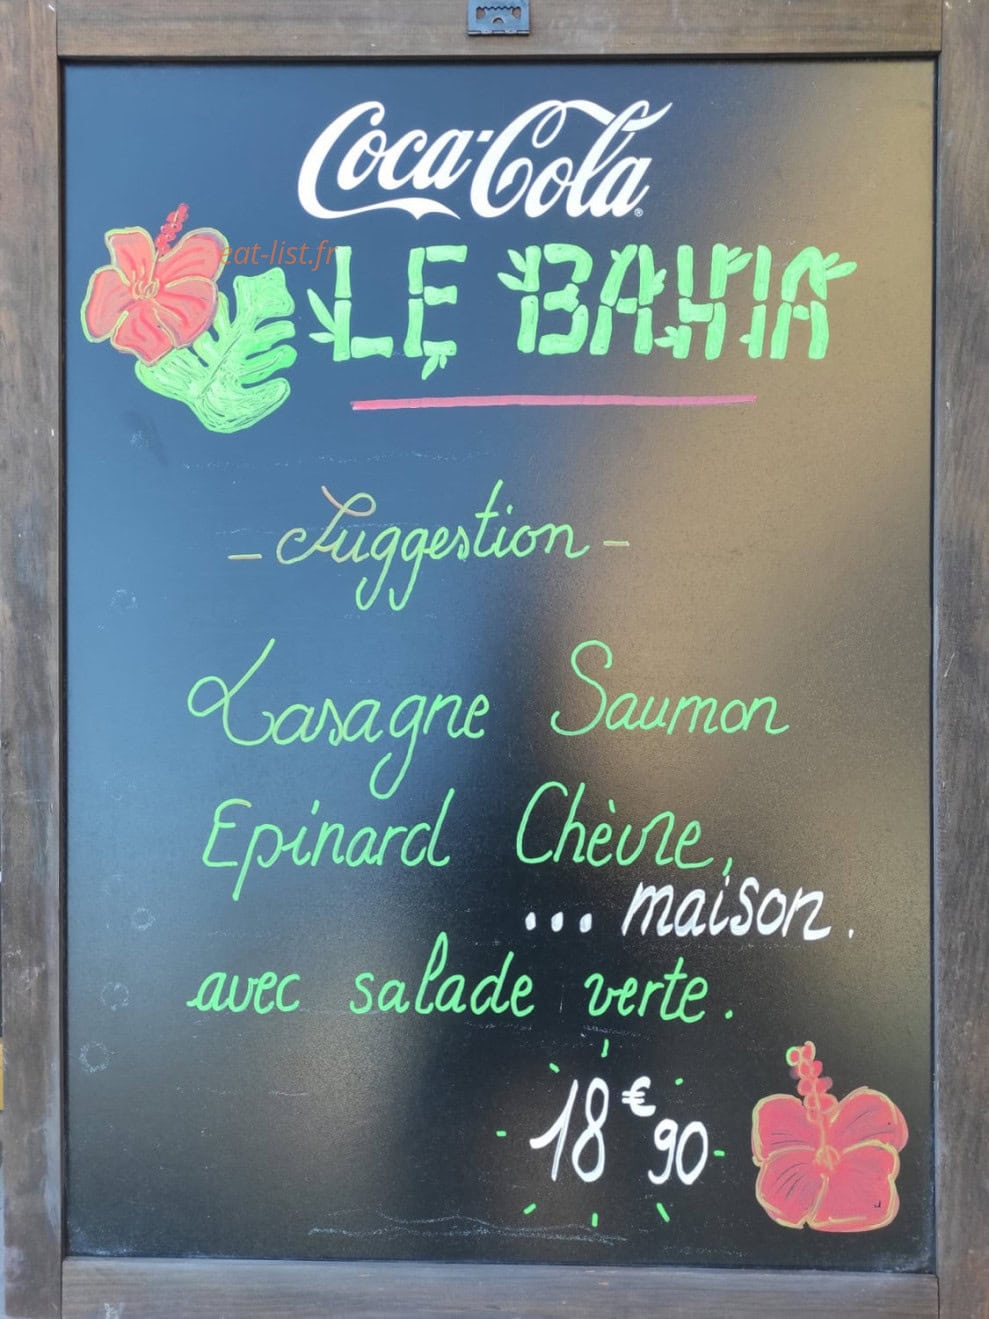 Coca-Cola
eat-list.fr
LE BAHIA
- Suggestion -
Lasagne Saumon
Epinard Chèvre,
... maison.
avec salade verte.
18€90